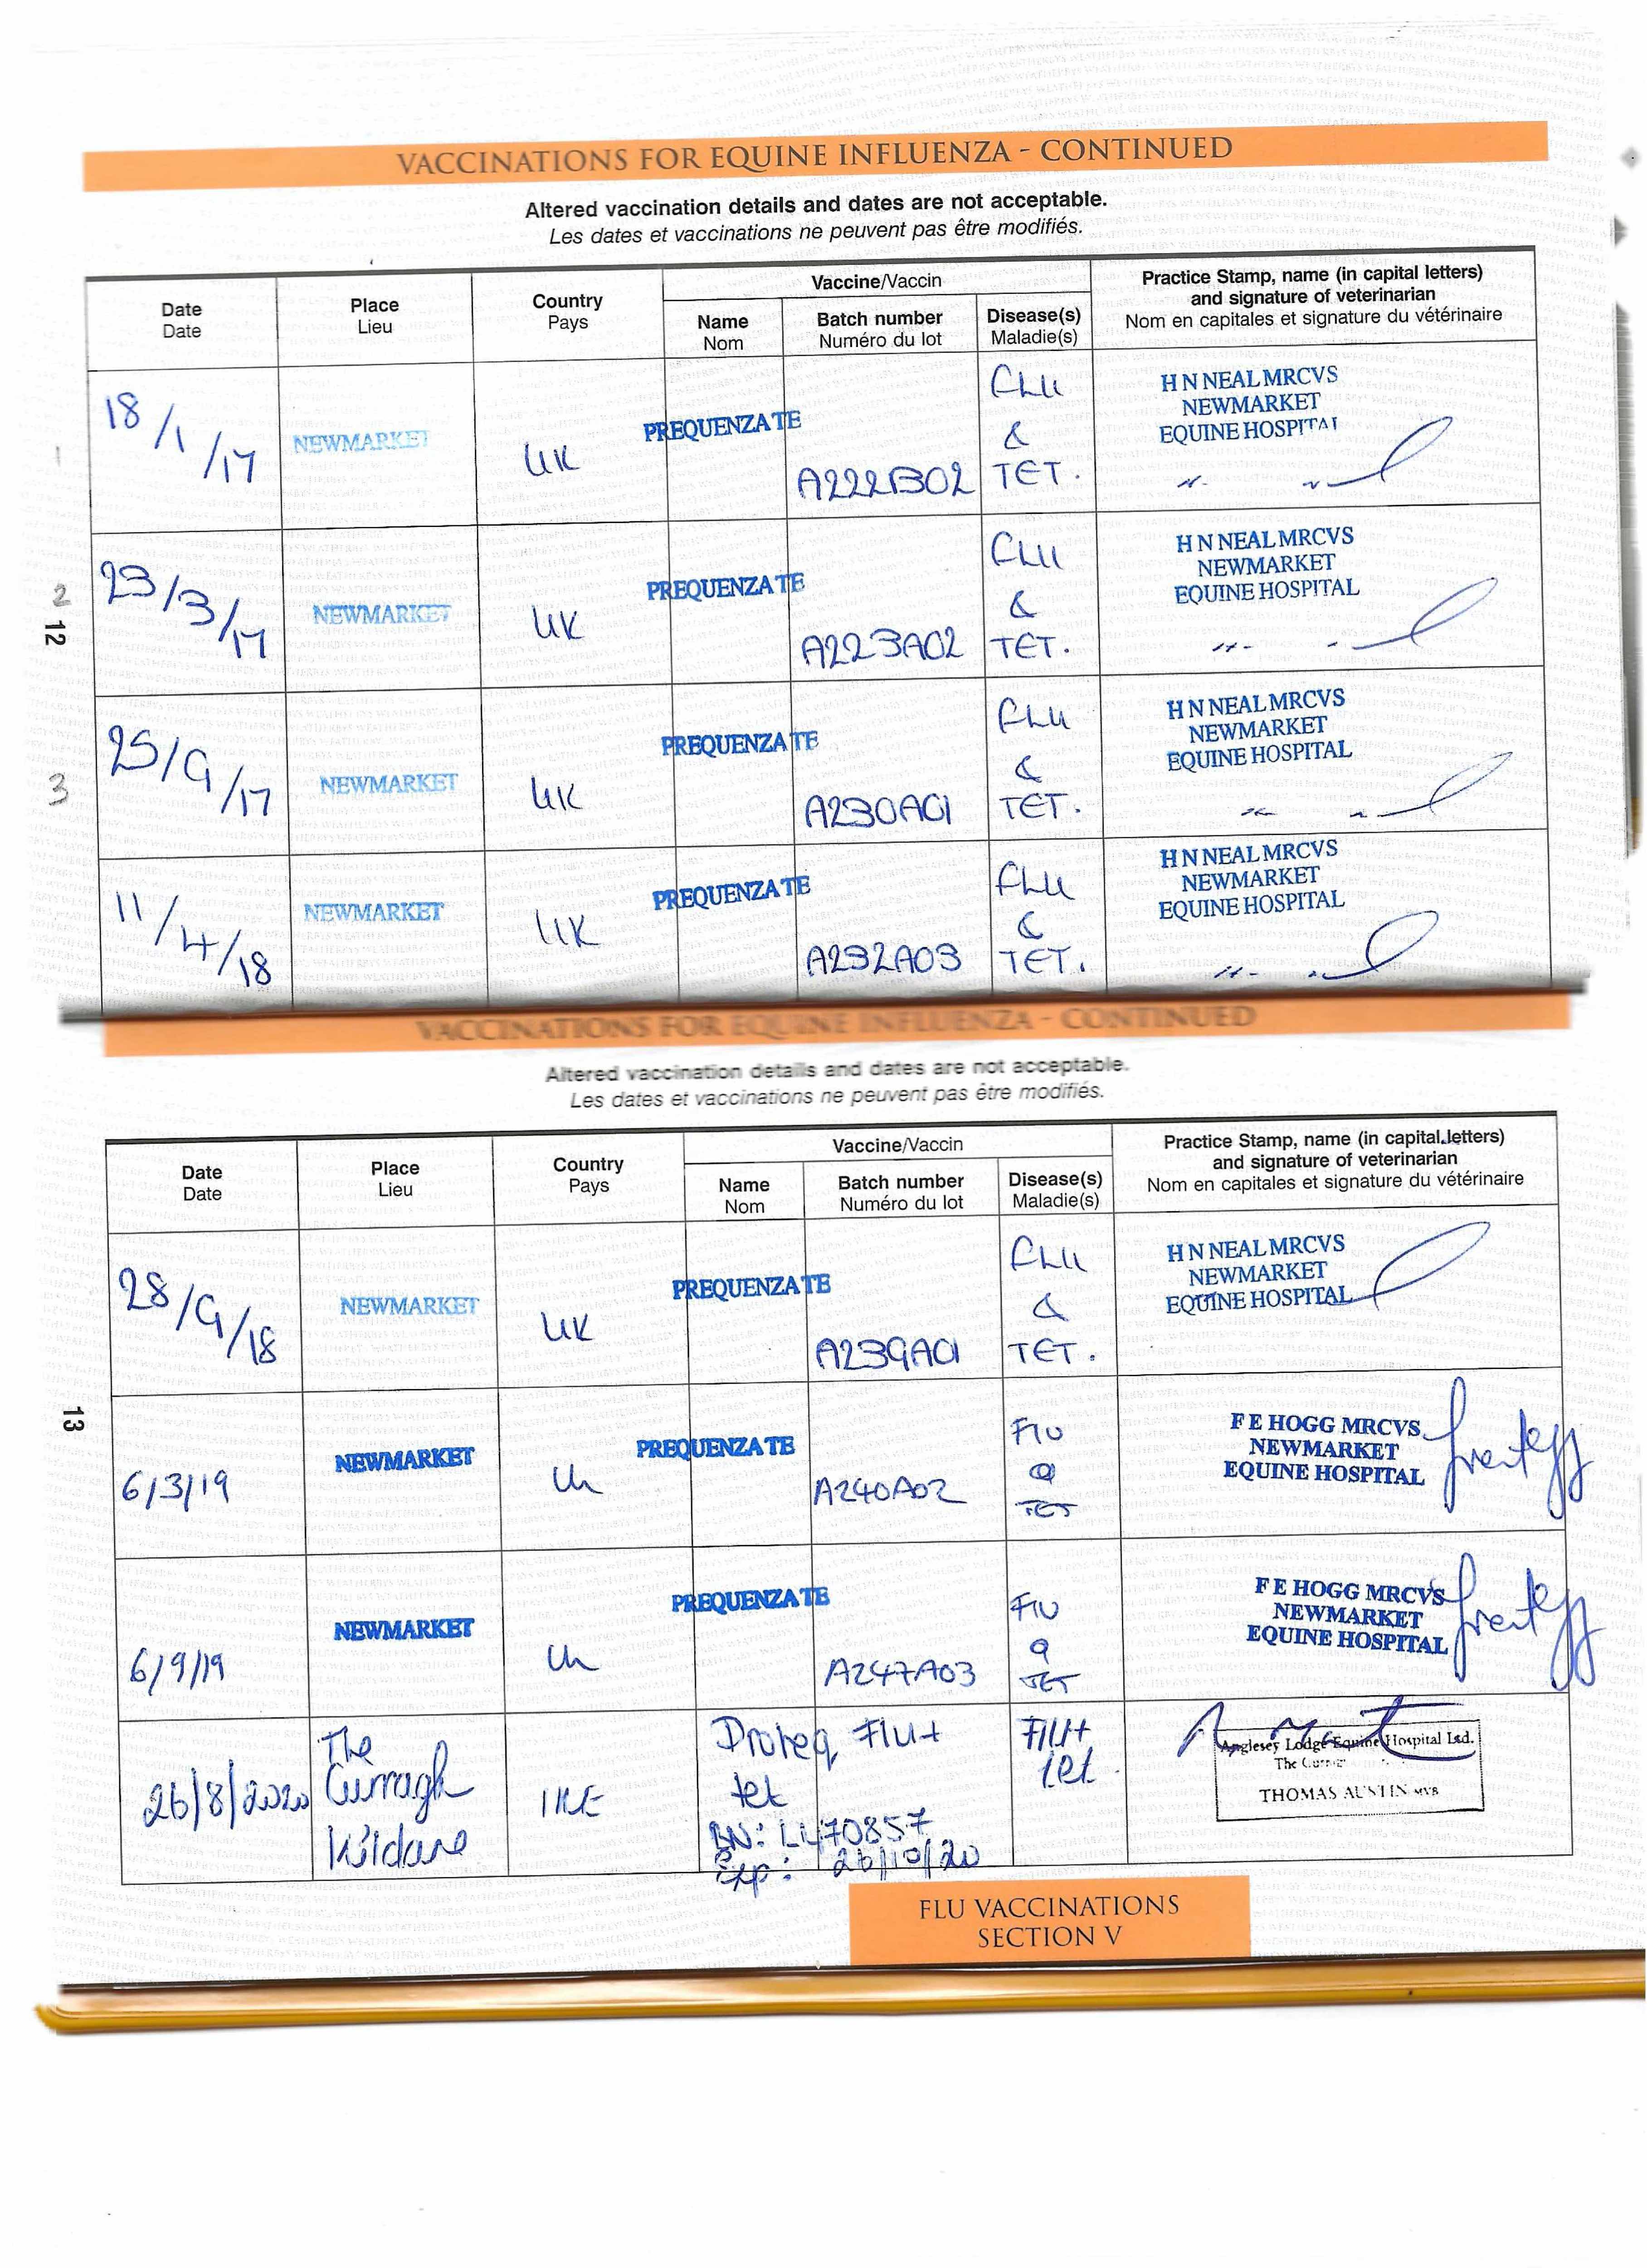 VACCINATIONS FOR EQUINE INFLUENZA - CONTINUED
Altered vaccination details and dates are not acceptable.
Les dates et vaccinations ne peuvent pas être modifiés.
Date Place Country Vaccine/Vaccin Practice Stamp, name (in capital letters)
Date Lieu Pays Name Batch number Disease(s) and signature of veterinarian
Nom Numéro du lot Maladie(s) Nom en capitales et signature du vétérinaire
1
18/1/17 NEWMARKET UK PREQUENZA TE A222B02 FLU & TET.
H N NEAL MRCVS
NEWMARKET
EQUINE HOSPITAL
2
12
23/3/17 NEWMARKET UK PREQUENZA TE A223A02 FLU & TET.
H N NEAL MRCVS
NEWMARKET
EQUINE HOSPITAL
3
25/9/17 NEWMARKET UK PREQUENZA TE A230A01 FLU & TET.
H N NEAL MRCVS
NEWMARKET
EQUINE HOSPITAL
11/4/18 NEWMARKET UK PREQUENZA TE A232A03 FLU & TET.
H N NEAL MRCVS
NEWMARKET
EQUINE HOSPITAL
VACCINATIONS FOR EQUINE INFLUENZA - CONTINUED
Altered vaccination details and dates are not acceptable.
Les dates et vaccinations ne peuvent pas être modifiés.
Date Place Country Vaccine/Vaccin Practice Stamp, name (in capital letters)
Date Lieu Pays Name Batch number Disease(s) and signature of veterinarian
Nom Numéro du lot Maladie(s) Nom en capitales et signature du vétérinaire
28/9/18 NEWMARKET UK PREQUENZA TE A239A01 FLU & TET.
H N NEAL MRCVS
NEWMARKET
EQUINE HOSPITAL
13
6/3/19 NEWMARKET UK PREQUENZA TE A240A02 Flu & TET
F E HOGG MRCVS
NEWMARKET
EQUINE HOSPITAL
6/9/19 NEWMARKET UK PREQUENZA TE A247A03 Flu & TET
F E HOGG MRCVS
NEWMARKET
EQUINE HOSPITAL
26/8/2020 The Curragh Kildare IRE Proteq Flu + tet Flu + tet.
BN: L470857
Exp: 26/10/20
Anglesey Lodge Equine Hospital Ltd.
The
THOMAS AUSTIN MVB
FLU VACCINATIONS
SECTION V